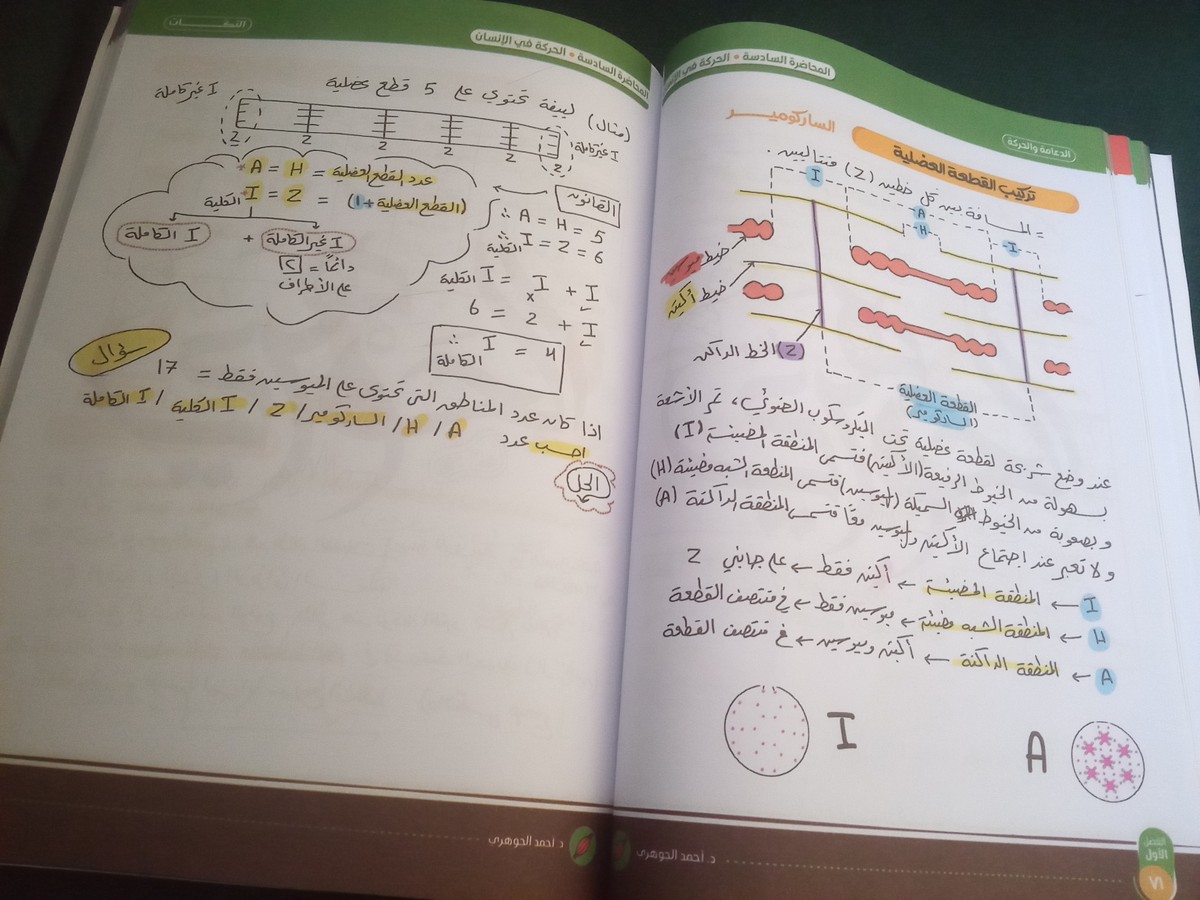 المحاضرة السادسة • الحركة في الإنسان
الدعامة والحركة
تركيب القطعة العضلية
الساركوميـر
= المسافة بين كل خطين (Z) متتاليين .
I
A
H
I
خيط ميوسين
خيط أكتين
الخط الداكن (Z)
القطعة العضلية
(الساركومير)
عند وضع شريحة لقطعة عضلية تحت الميكروسكوب الضوئي، تمر الأشعة
بسهولة من الخيوط الرفيعة (الأكتين) فتسمى المنطقة المضيئة (I)
وبصعوبة من الخيوط السميكة (الميوسين) فتسمى المنطقة الشبه مضيئة (H)
ولا تعبر عند اجتماع الأكتين والميوسين معًا فتسمى المنطقة الداكنة (A)
I ← المنطقة المضيئة ← أكتين فقط ← على جانبي Z
H ← المنطقة الشبه مضيئة ← ميوسين فقط ← في منتصف القطعة
A ← المنطقة الداكنة ← أكتين وميوسين ← في منتصف القطعة
I
A
د. أحمد الجوهري
الفصل
الأول
٧١
التفـــان
المحاضرة السادسة • الحركة في الإنسان
(مثال) ليفة تحتوي على 5 قطع عضلية
I غير كاملة
I غير كاملة
Z
Z
Z
Z
Z
Z
القانون
عدد القطع العضلية = A = H
(القطع العضلية + 1) = Z = I الكلية
I غير الكاملة + I الكاملة
دائمًا = 2
على الأطراف
∴ A = H = 5
∴ I الكلية = Z = 6
I الكلية = I + I
6 = 2 + I
∴ I الكاملة = 4
سؤال
اذا كان عدد المناطق التى تحتوى على الميوسين فقط = 17
احسب عدد A / H / الساركومير / Z / I الكلية / I الكاملة
الحل
د. أحمد الجوهري